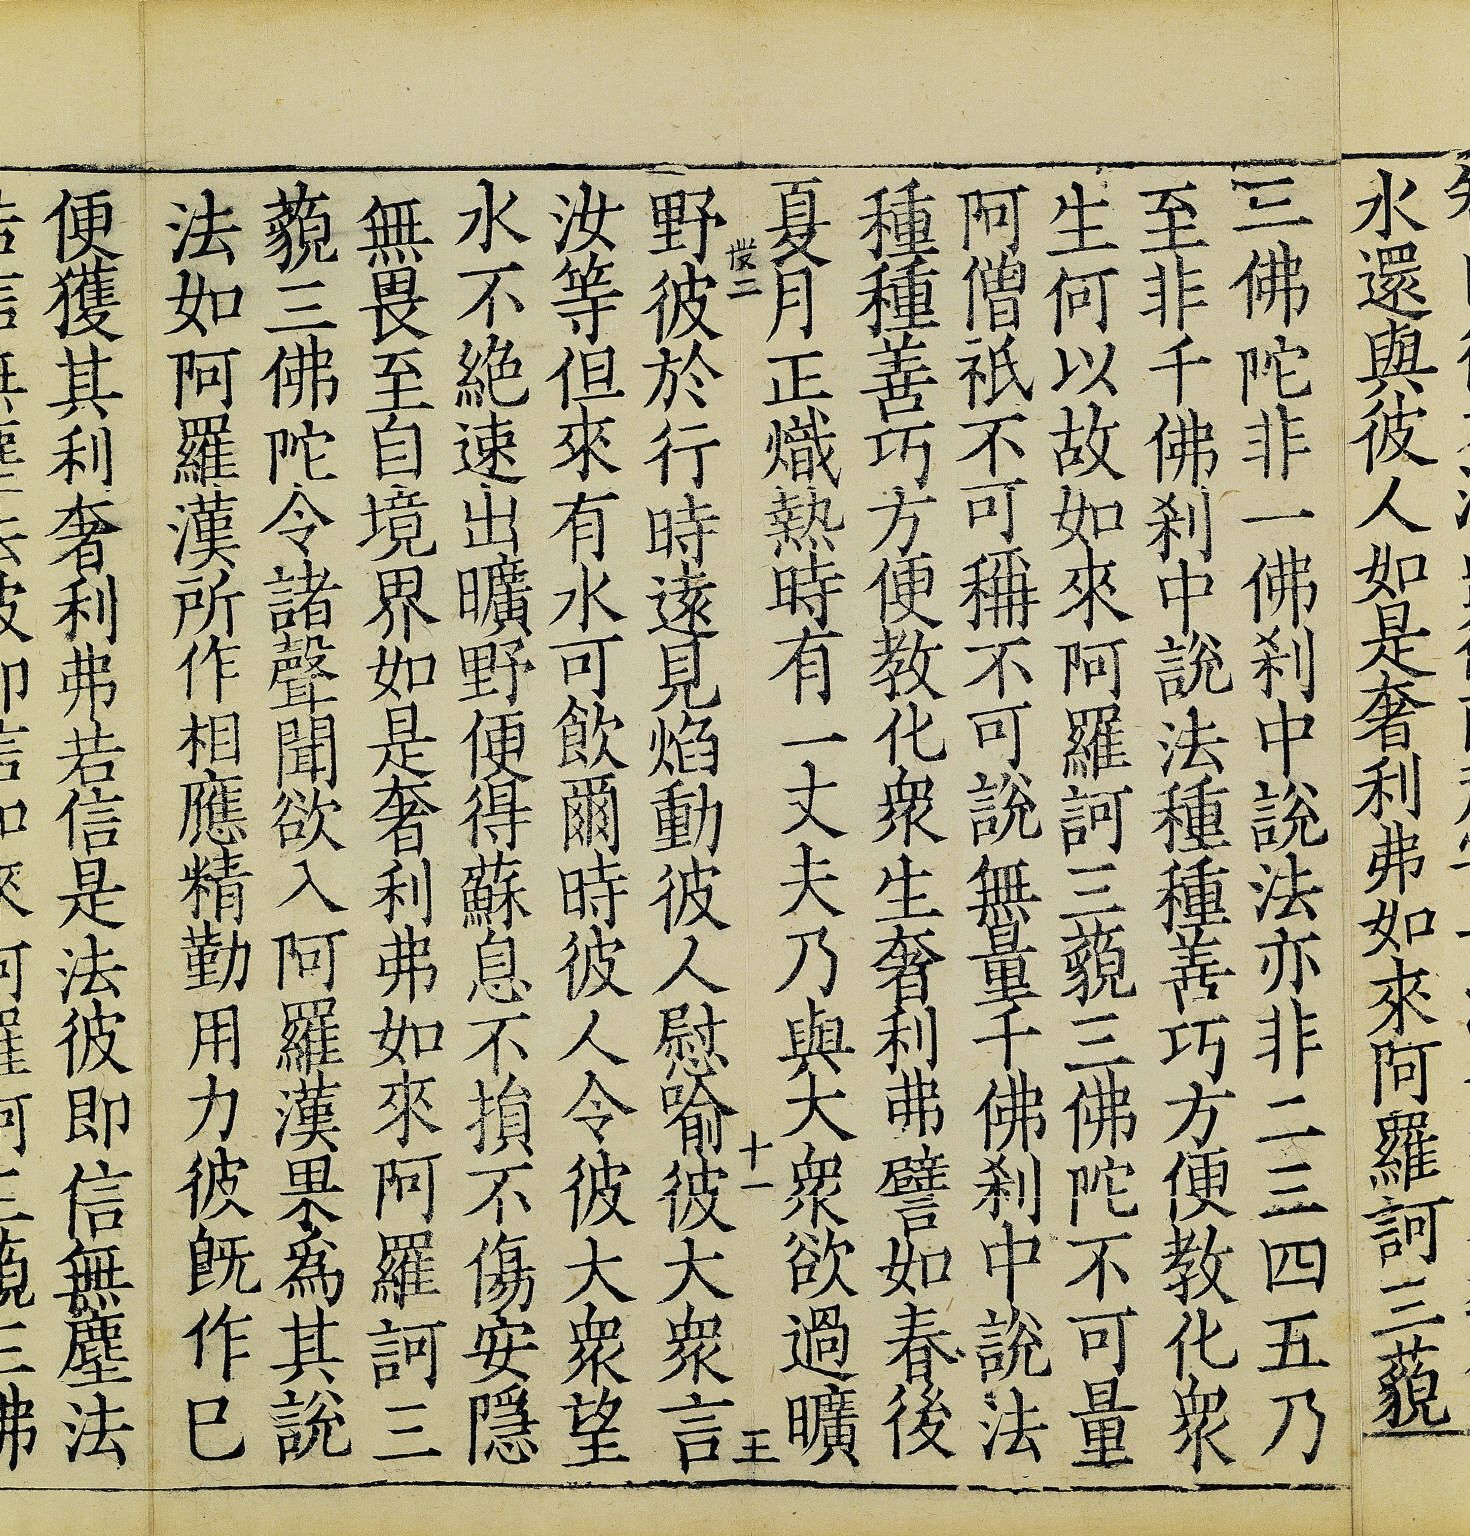 水還與彼人如是奢利弗如來阿羅訶三藐
三佛陀非一佛刹中說法亦非二三四五乃
至非千佛刹中說法種種善巧方便教化衆
生何以故如來阿羅訶三藐三佛陀不可量
阿僧祇不可稱不可說無量千佛刹中說法
種種善巧方便教化衆生奢利弗譬如春後
夏月正熾熱時有一丈夫乃與大衆欲過曠
十一 王
野彼於行時遠見焰動彼人慰喻彼大衆言
汝等但來有水可飲爾時彼人令彼大衆望
水不絶速出曠野便得蘇息不損不傷安隱
無畏至自境界如是奢利弗如來阿羅訶三
藐三佛陀令諸聲聞欲入阿羅漢果爲其說
法如阿羅漢所作相應精勤用力彼旣作已
便獲其利奢利弗若信是法彼即信無塵法